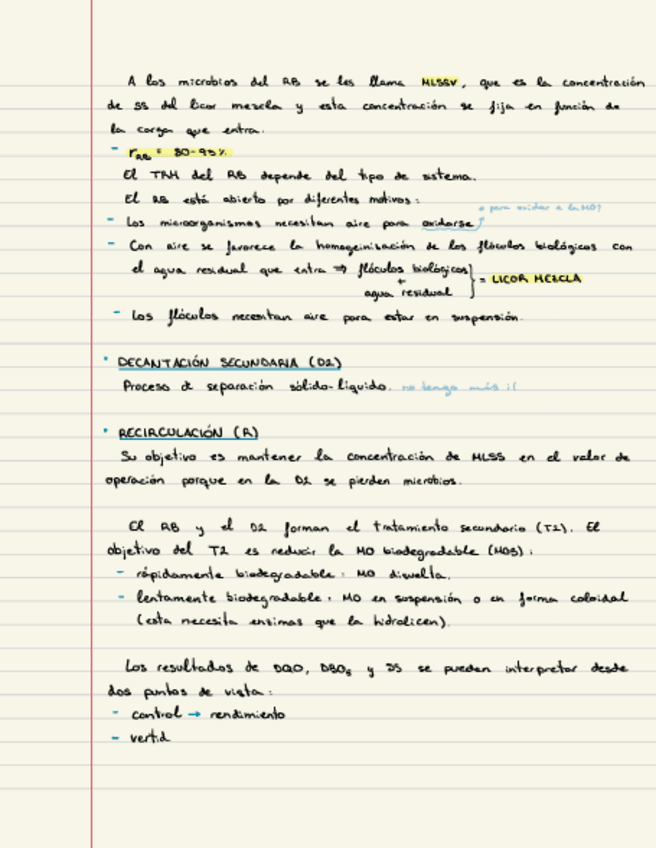 A los microbios del RB se les llama MLSSV, que es la concentración
de SS del licor mezcla y esta concentración se fija en función de
la carga que entra.
- rRB = 80-95%
El TRH del RB depende del tipo de sistema.
El RB está abierto por diferentes motivos:
para oxidar a la MO?
- Los microorganismos necesitan aire para oxidarse
- Con aire se favorece la homogeinisación de los flóculos biológicos con
el agua residual que entra ⇒ flóculos biológicos
+ = LICOR MEZCLA
agua residual
- Los flóculos necesitan aire para estar en suspensión.
• DECANTACIÓN SECUNDARIA (D2)
Proceso de separación sólido-líquido. no tengo más :(
• RECIRCULACIÓN (R)
Su objetivo es mantener la concentración de MLSS en el valor de
operación porque en la D2 se pierden microbios.
El RB y el D2 forman el tratamiento secundario (T2). El
objetivo del T2 es reducir la MO biodegradable (MOB):
- rápidamente biodegradable: MO disuelta.
- lentamente biodegradable: MO en suspensión o en forma coloidal
(esta necesita ensimas que la hidrolicen).
Los resultados de DQO, DBO5 y SS se pueden interpretar desde
dos puntos de vista:
- control → rendimiento
- vertid